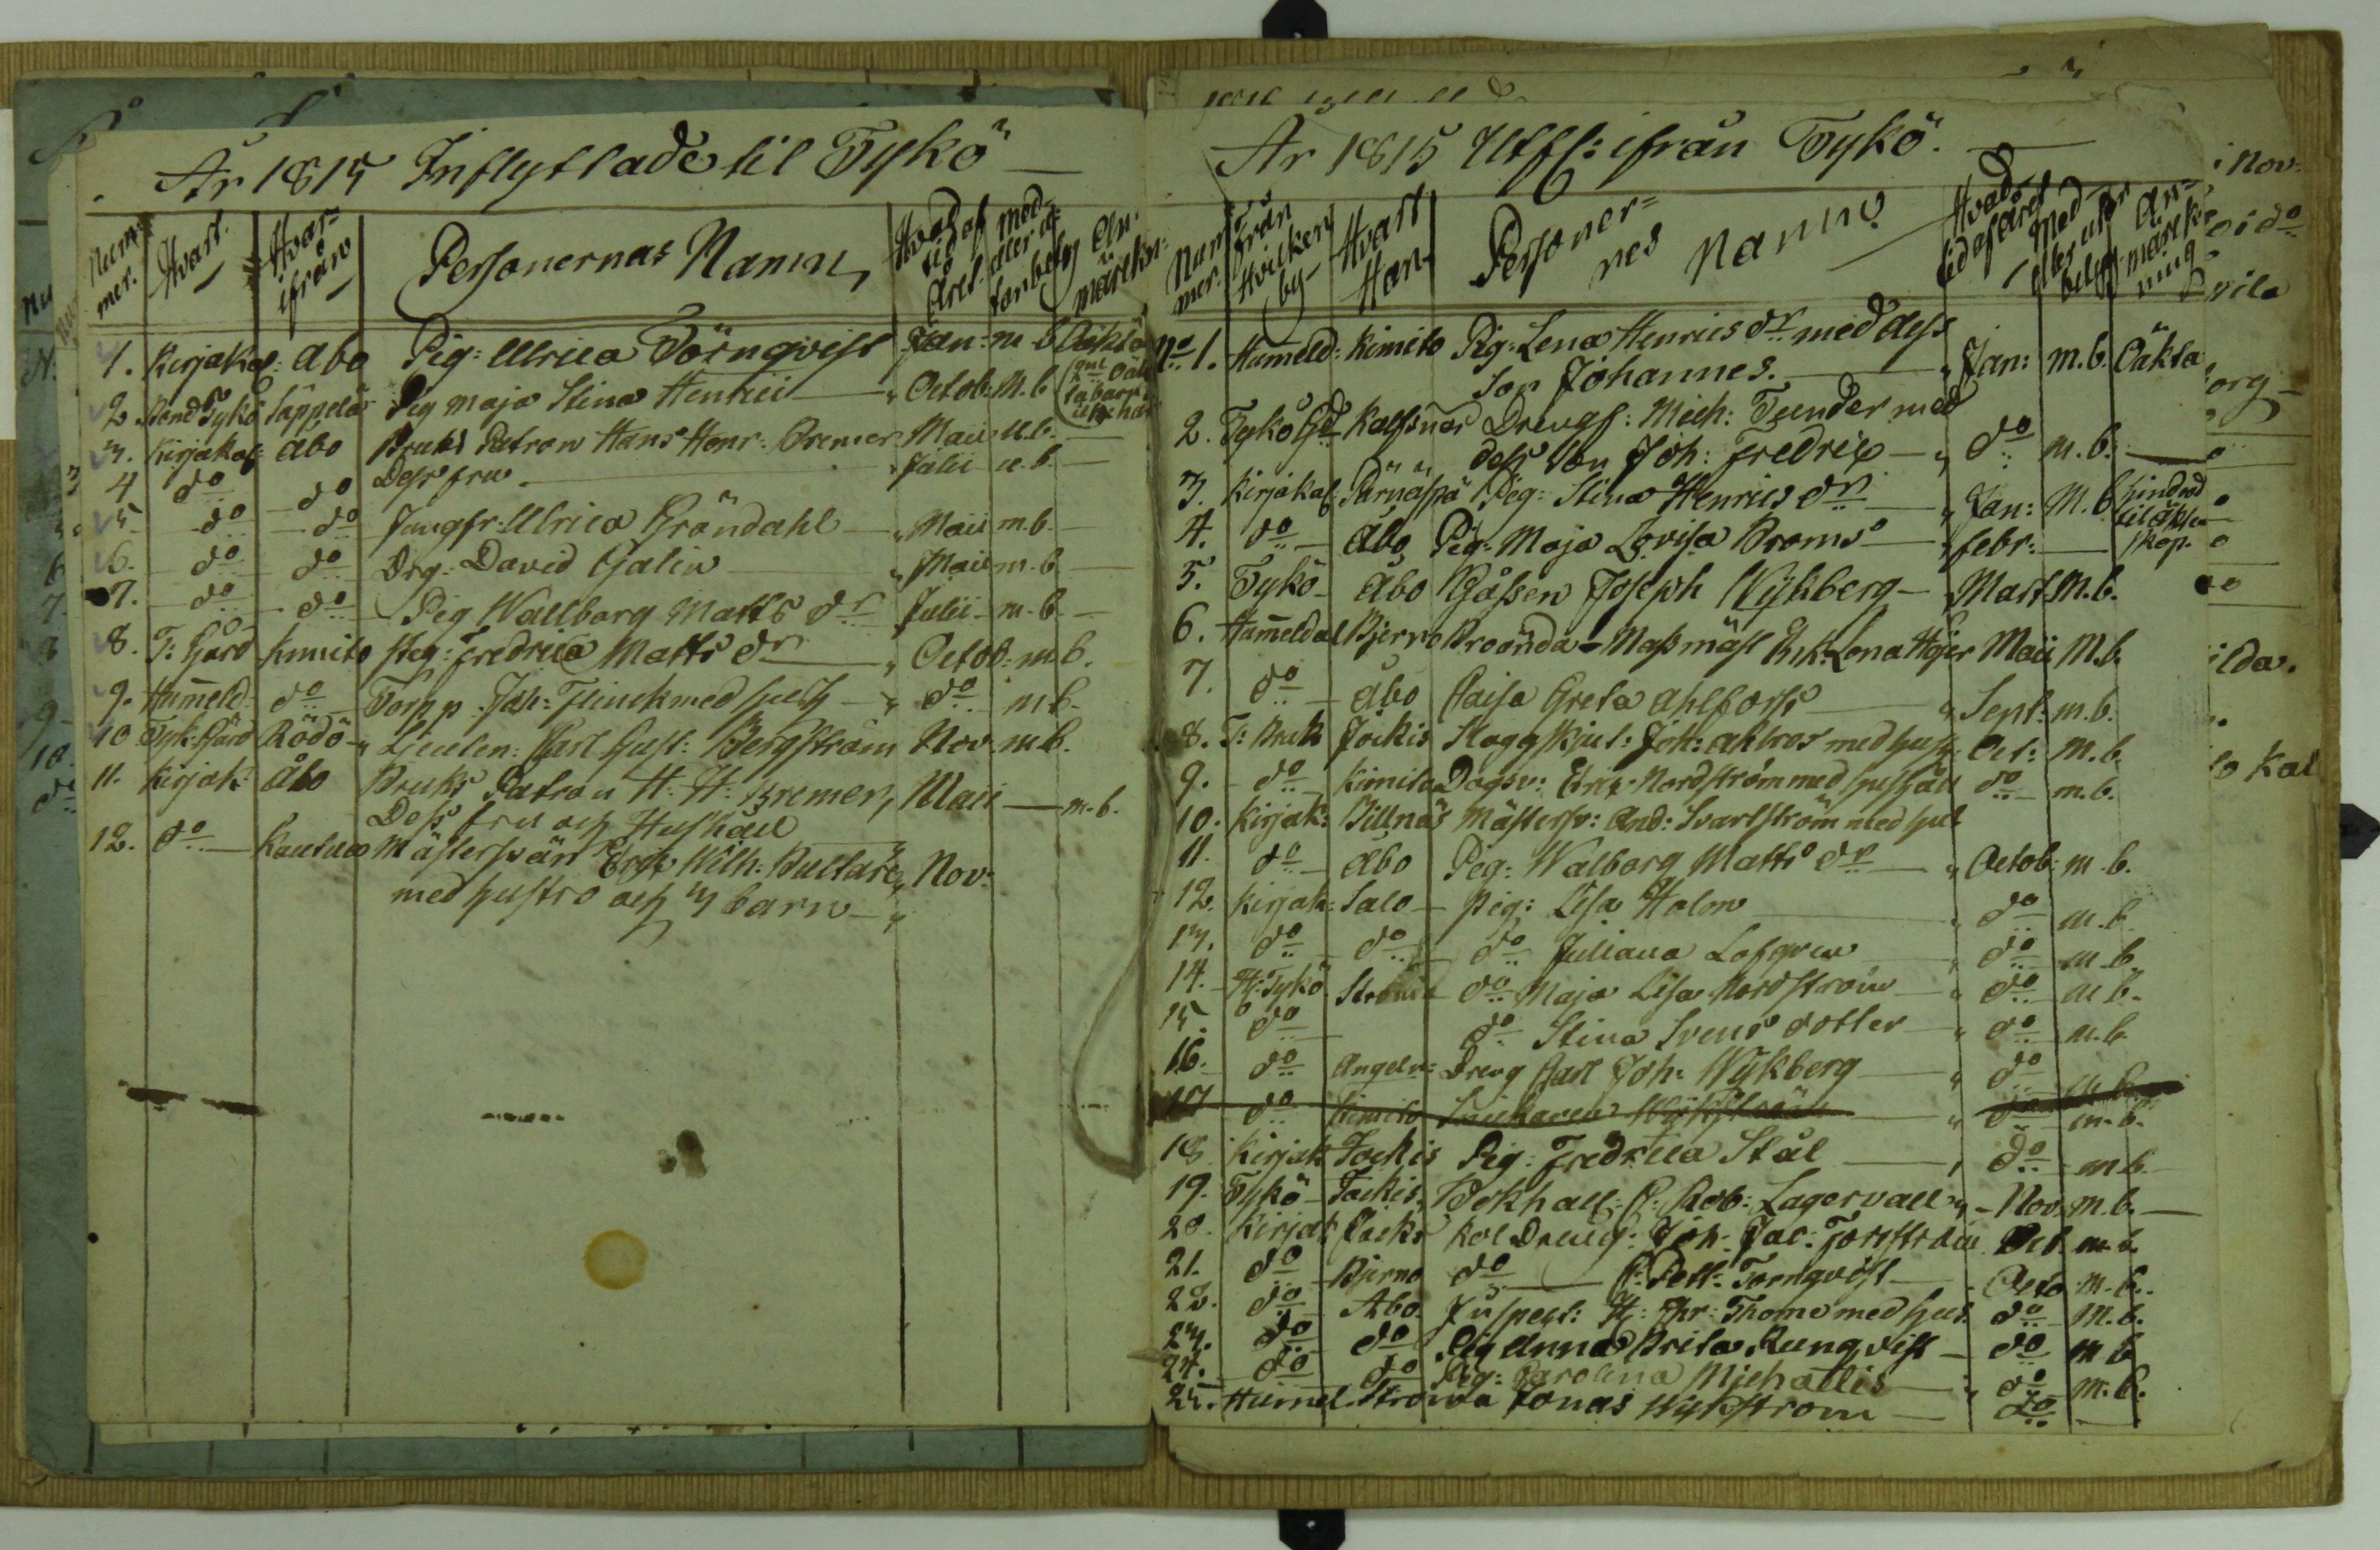 År 1815 Inflyttade til Tykö
Num̄mer. Hvart. Hvarifrån Personernas Namn, Hvad af tid Året. med eller utan betyg Anmärkn:
1. Kirjakal: Åbo Pig: Ulrica Törnqvist Jan: m b Oäkta
2. Tykö Pig Maja Stina Henrici Octob. M. b
3. Kirjakal: Åbo Bruks Patron Hans Henr: Bremer Maii u. b.
4 do do Dess fru Julii u. b.
5 do do Jungfr: Ulrica Gröndahl Maii m. b.
6. do do Drg: David Galin Maii m. b.
7. do do Pig Wallborg Matts dr Julii m. b.
8. T: Gård Kimito Pig: Fredrica Matts dr Octob: m b.
9. Hum̄eld do Torpp. Joh: Flinck med hust do m b.
10 Tyk: Gård Rödö Lieuten: Carl Gust: Bergström Nov m b.
11. Kirjak: Åbo Bruks Patron H: H: Bremer, Maii m. b.
Dess fru och Hushåll
12. do Mästersvän Eric Wilh: Bultare Nov:
med hustro och 3 barn
År 1815 Utfl: ifrån Tykö.
Num̄mer. Från Hvilken by Hvart Han Personernes Namn Hvad tid af året Med eller utan betyg Anmärkning
No 1. Hum̄eld: Kimito Pig: Lena Henrics dr med dess
Son Johannes. Jan: m. b. Oäkta
2. Tykö Gd Drengs: Mich: Tunder med
dess son Joh: Fredric do m. b.
3. Kirjakal: Pärnäspä Pig: Stina Henrics dr Jan: M. b hindrad til äktenskap.
4. do Åbo Pig: Maja Lovisa Broms febr:
5. Tykö Åbo Gåssen Joseph Wykberg Mart M. b.
6. Ham̄eldal Bjerno Masmäst Enk: Lena Höjer Maii M. b.
7. do Åbo Caisa Greta Ahlfors Sept: m. b.
8. T: Bruk Jockis Slaggskjut: Joh: Ahlros med hust Oct: M. b.
9. do Kimito Dagsv: Eric Nordström med hushåll do m. b.
10. Kirjak: Billnäs Mästersv: And: Svartström med hust
11. do Åbo Pig: Walborg Matts dr Octob: m. b.
12. Kirjak: Salo pig: Lisa Holm do m. b
13. do do do Juliana Lofgren do m. b.
14. H: Tykö Ströma do Maja Lisa Nordström do m b.
15. do do Stina Svens dotter do m. b.
16. do Angeln: Dreng Carl Joh: Wykberg do m. b
17 do Kimito do m. b.
18 Kirjak Jockis Pig: Fredrica Stål do m b
19. Tykö Jockis, Bokhall: C: Rob: Lagervall Nov. m. b.
20. Kirjak Jockis Kol Dreng: Joh: Jac: Forsström Oct. m. b.
21. do Bjerno do C: Pett: Tornqvist Octo m. b.
22. do Abo Inspect: H: Thr: Thome med hus do M. b.
23. do do Pig Anna Brita Rungvist do m b
24. do do Pig: Carolina Michaelis do m. b.
25. Hum̄el. Ströma Jonas Wykstrom do